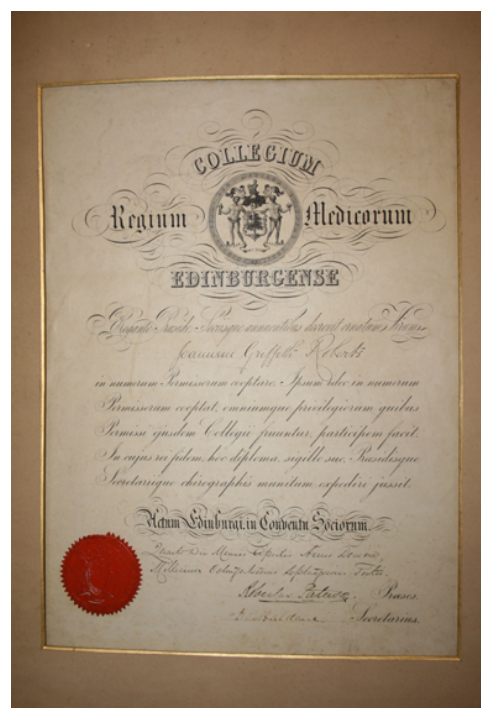 COLLEGIUM
Regium Medicorum
EDINBURGENSE
Rogante Praeside, Sociisque annuentibus decrevit ornatum Virum
Joannem Griffith Roberts
in numerum Permissorum cooptare. Ipsum ideo in numerum
Permissorum cooptat, omniumque privilegiorum quibus
Permissi ejusdem Collegii fruuntur, participem facit.
In cujus rei fidem, hoc diploma, sigillo suo, Praesidisque
Secretariique chirographis munitum expediri jussit.
Actum Edinburgi, in Conventu Sociorum.
Die Mensis Anno Domini
Millesimo Octingentesimo Septuagesimo
Praeses.
Secretarius.